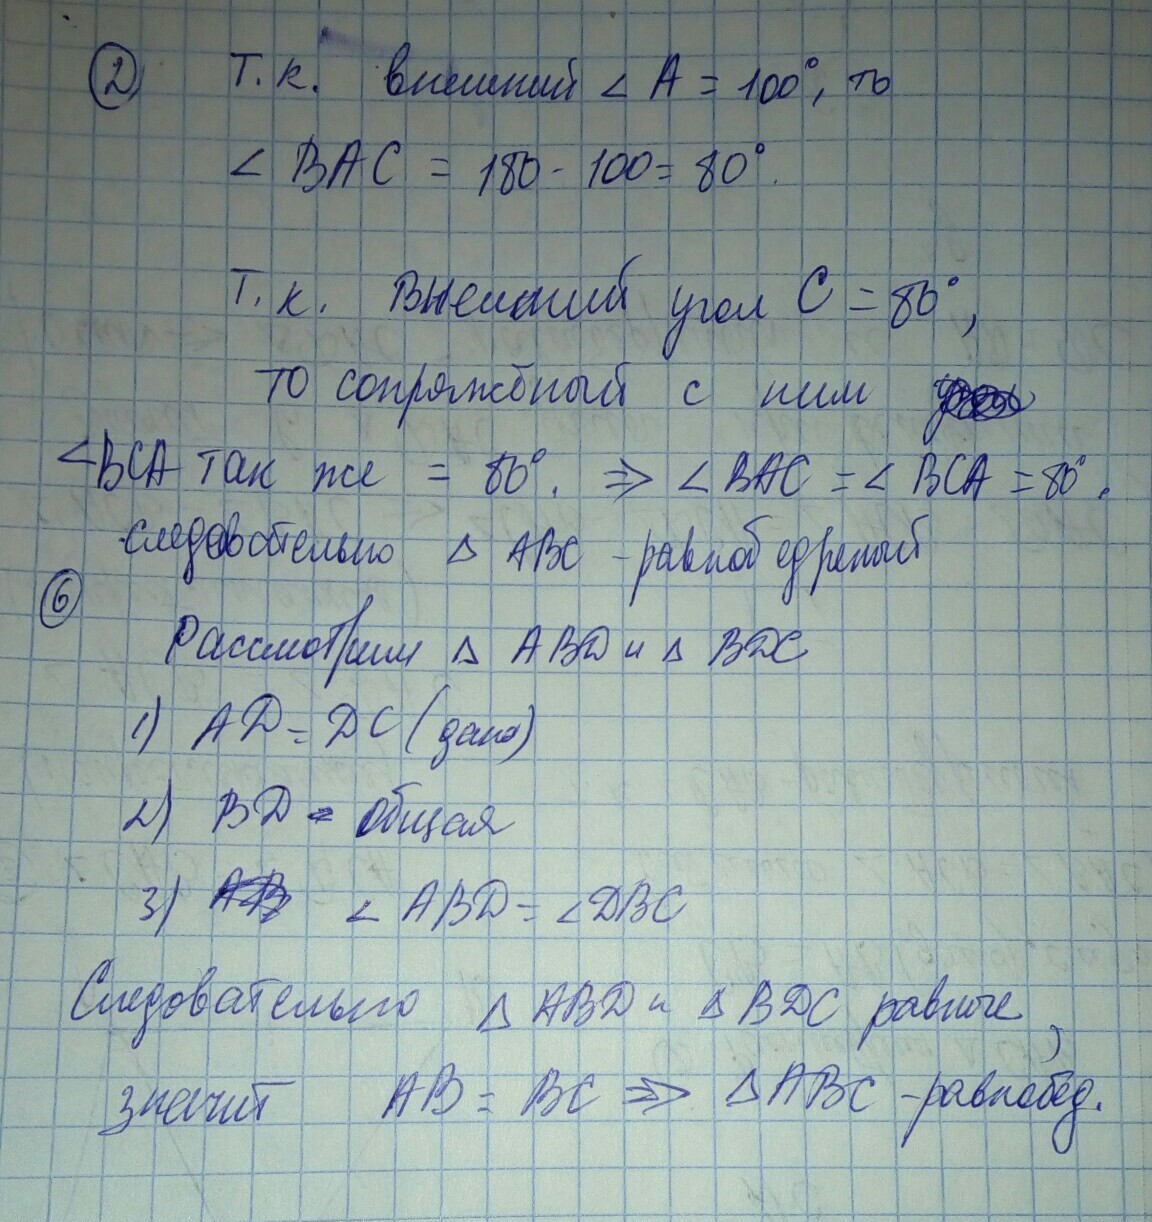 ② Т.к. внешний ∠ A = 100°, то
∠ BAC = 180 - 100 = 80°.
Т.к. Внешний угол C = 80°,
то сопряжённый с ним
∠BCA так же = 80°. ⇒ ∠ BAC = ∠ BCA = 80°.
следовательно Δ ABC - равнобедреный
⑥
Рассмотрим Δ ABD и Δ BDC
1) AD = DC (дано)
2) BD - общая
3) ∠ ABD = ∠DBC
Следовательно Δ ABD и Δ BDC равные,
значит AB = BC ⇒ ΔABC - равнобед.